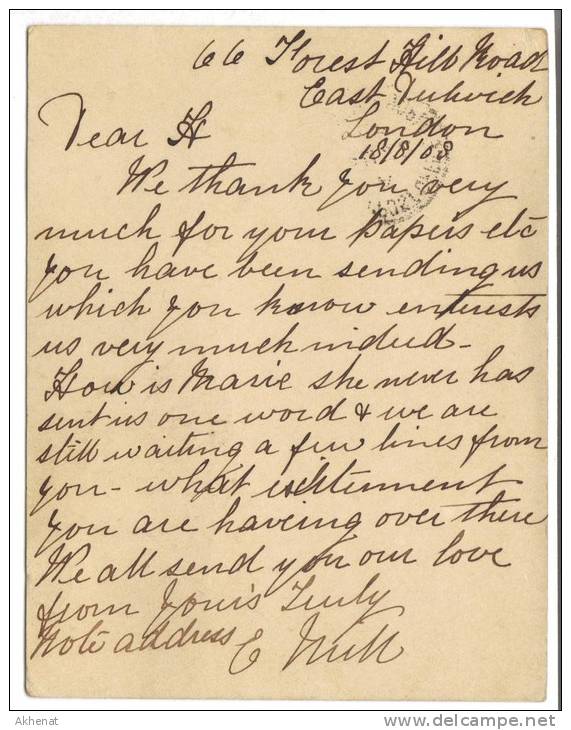 66 Forest Hill Road
East Dulwich
London
18/8/08
Dear H
We thank you very
much for your papers etc
you have been sending us
which you know enterests
us very much indeed -
How is Marie she never has
sent us one word & we are
still waiting a few lines from
you - what exitement
you are haveing over there
We all send you our love
from Yours Truly
Note address E
Akhenat
delcampe.net